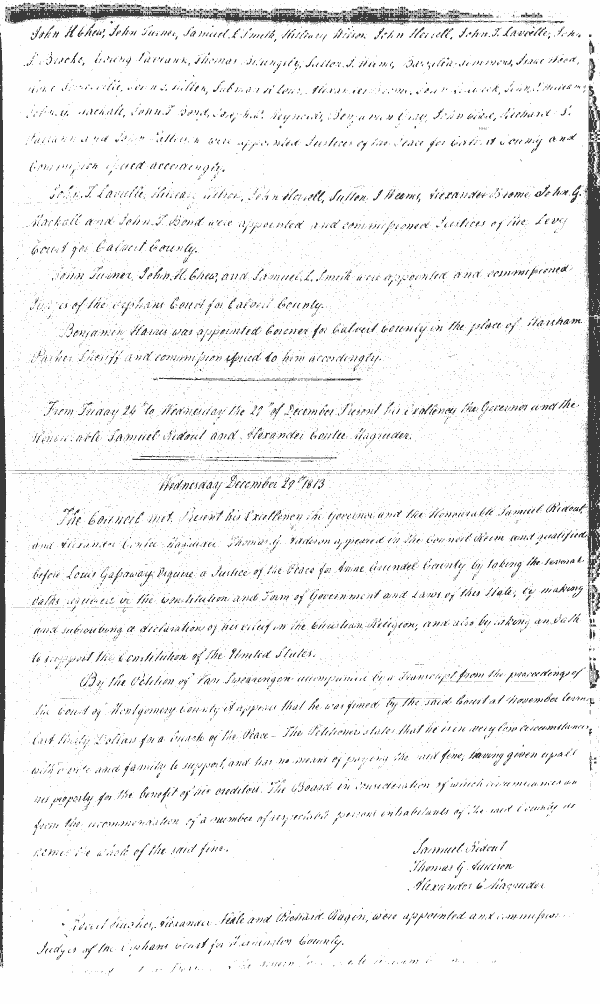 John H. Chew, John Turner, Samuel L. Smith, Hilleary Wilson John Howell, John T. Lavielle, John
Thomas Sutton I. Weems, Alexander Broome,
John G. Mackall, John T. Bond, Joseph W. Reynolds, Benjamin Gray, John Richard
and John were appointed Justices of the Peace for Calvert County and
Commission issued accordingly.
John T. Lavielle, Hilleary Wilson, John Howell, Sutton I Weems, Alexander Broome, John G.
Mackall and John T. Bond were appointed and commissioned Justices of the Levy
Court for Calvert County.
John Turner, John H. Chew, and Samuel L. Smith were appointed and commissioned
Judges of the Orphans Court for Calvert County.
Benjamin Harris was appointed Coroner for Calvert County in the place of
Parker Sheriff and commission issued to him accordingly.
From Friday 24th to Wednesday the 29th of December Present his Excellency the Governor and the
Honourable Samuel Ridout and Alexander Contee Magruder.
Wednesday December 29th 1813
The Council met. Present his Excellency the Governor and the Honourable Samuel Ridout
and Alexander Contee Magruder. Thomas G. Addison appeared in the Council Room and qualified
before Louis Gassaway Esquire a Justice of the Peace for Anne Arundel County by taking the several
oaths required by the Constitution and Form of Government and Laws of this State, by making
and subscribing a declaration of his belief in the Christian Religion, and also by taking an Oath
to support the Constitution of the United States.
By the Petition of Van Swearengen accompanied by a Transcript from the proceedings of
the Court of Montgomery County it appears that he was fined by the said Court at November term
last thirty Dollars for a breach of the Peace – The Petitioner states that he is in very low circumstances
with a wife and family to support, and has no means of paying the said fine, having given up all
his property for the benefit of his creditors. The Board in consideration of which circumstances and
from the recommendation of a number of respectable persons inhabitants of the said County do
remit the whole of the said fine.
Samuel Ridout
Thomas G Addison
Alexander C Magruder
Alexander Neale and Richard Ragin, were appointed and commissioned
Judges of the Orphans Court for Washington County.